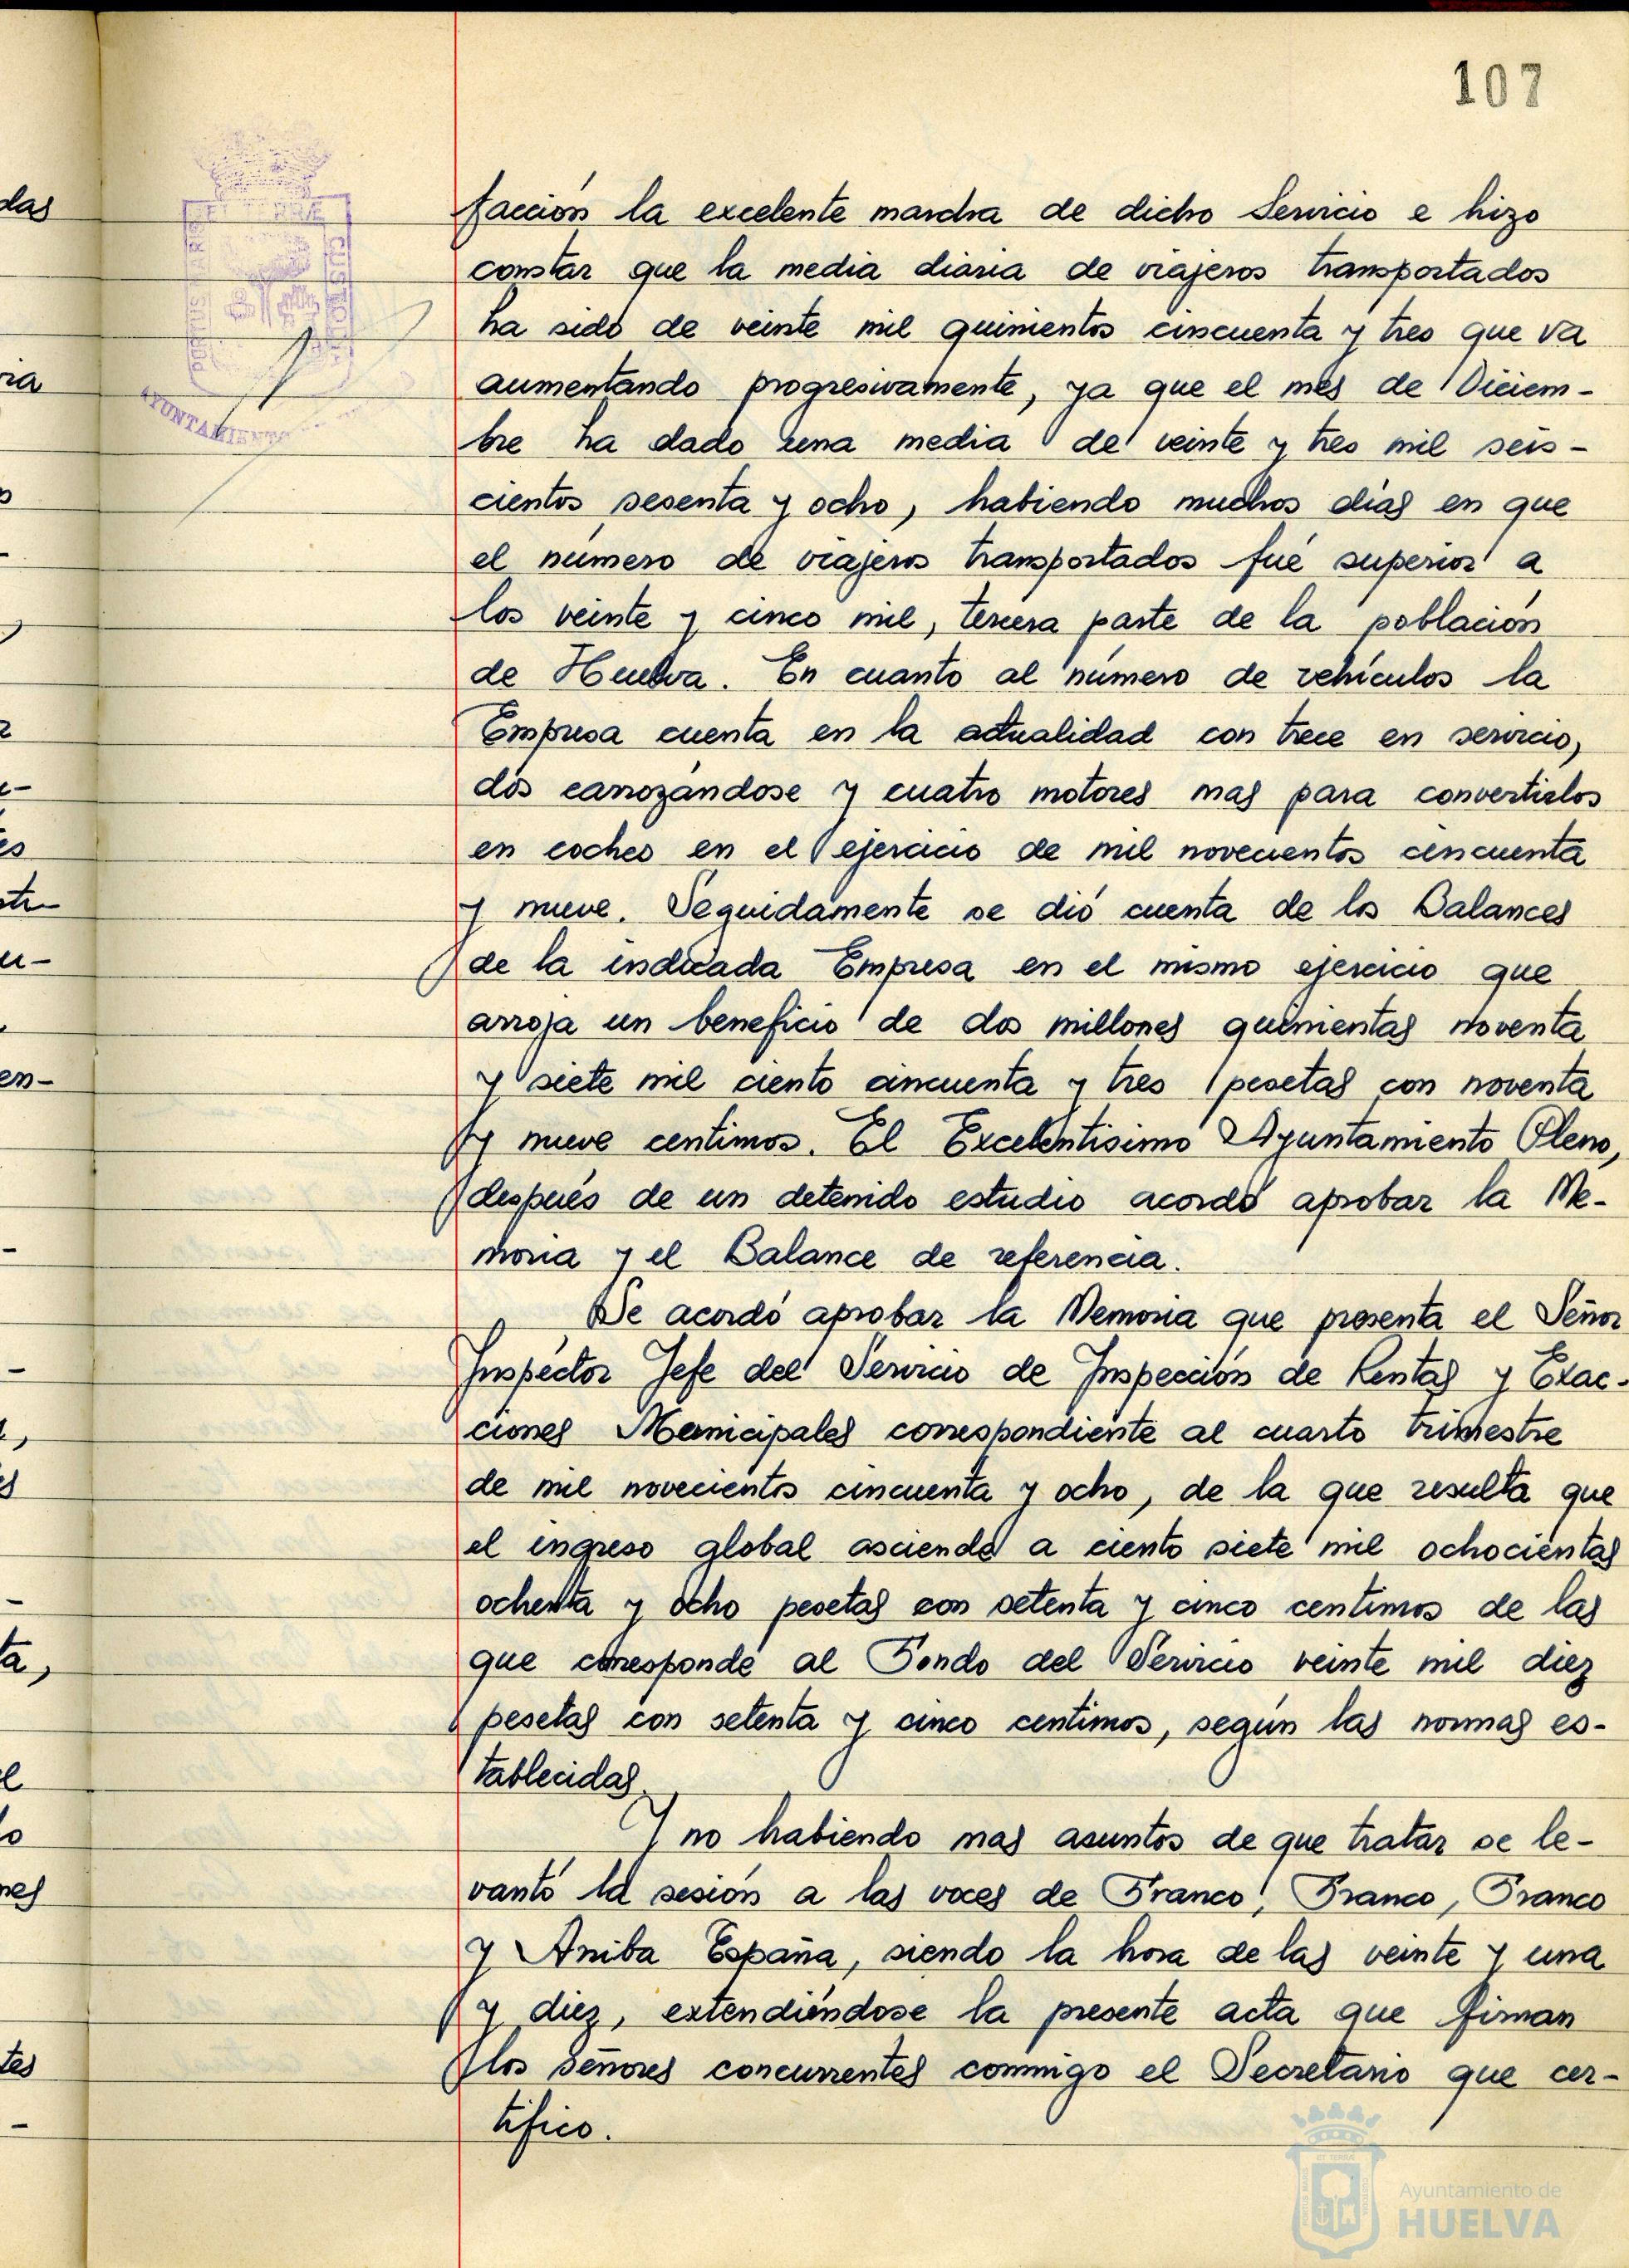 107
facción la excelente marcha de dicho Servicio e hizo
constar que la media diaria de viajeros transportados
ha sido de veinte mil quinientos cincuenta y tres que va
aumentando progresivamente, ya que el mes de Diciem-
bre ha dado una media de veinte y tres mil seis-
cientos sesenta y ocho, habiendo muchos días en que
el número de viajeros transportados fué superior a
los veinte y cinco mil, tercera parte de la población
de Huelva. En cuanto al número de vehículos la
Empresa cuenta en la actualidad con trece en servicio,
dos carrozándose y cuatro motores mas para convertirlos
en coches en el ejercicio de mil novecientos cincuenta
y nueve. Seguidamente se dió cuenta de los Balances
de la indicada Empresa en el mismo ejercicio que
arroja un beneficio de dos millones quinientas noventa
y siete mil ciento cincuenta y tres pesetas con noventa
y nueve centimos. El Excelentisimo Ayuntamiento Pleno,
después de un detenido estudio acordó aprobar la Me-
moria y el Balance de referencia.
Se acordó aprobar la Memoria que presenta el Señor
Inspector Jefe del Servicio de Inspección de Rentas y Exac-
ciones Municipales correspondiente al cuarto trimestre
de mil novecientos cincuenta y ocho, de la que resulta que
el ingreso global asciende a ciento siete mil ochocientas
ochenta y ocho pesetas con setenta y cinco centimos de las
que corresponde al Fondo del Servicio veinte mil diez
pesetas con setenta y cinco centimos, según las normas es-
tablecidas.
Y no habiendo mas asuntos de que tratar se le-
vantó la sesión a las voces de Franco, Franco, Franco
y Arriba España, siendo la hora de las veinte y una
y diez, extendiéndose la presente acta que firman
los señores concurrentes conmigo el Secretario que cer-
tifico.
PORTUS MARIS
ET TERRÆ
CUSTODIA
AYUNTAMIENTO
das
ria
en-
ta,
nes
tes
Ayuntamiento de
HUELVA